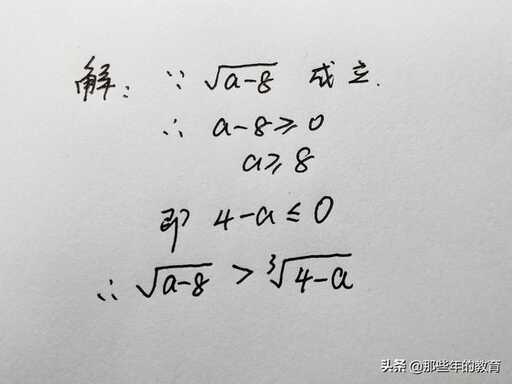 解: ∵ √(a-8) 成立.
∴ a-8≥0
a≥8
即 4-a≤0
∴ √(a-8) > ∛(4-a)
头条 @那些年的教育